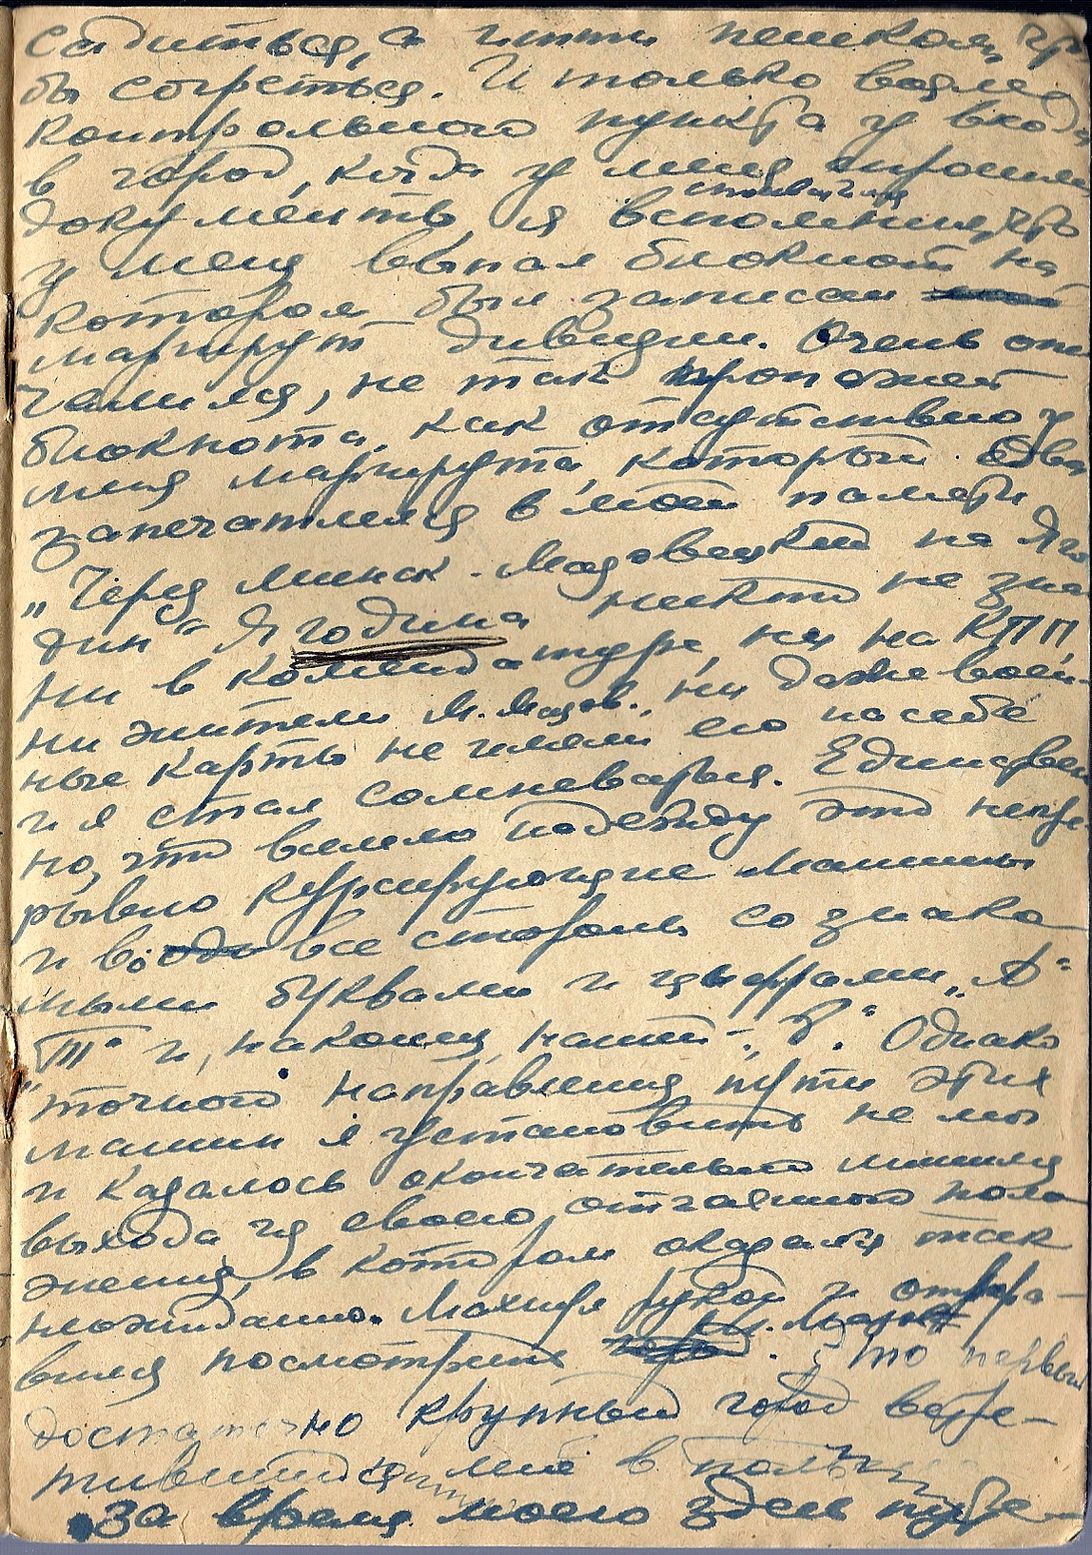 садиться, а итти пешком, что
бы согреться. И только возле
контрольного пункта у входа
в город, когда у меня спросили
документы, я спохватился
вспомнил, что
у меня выпал блокнот на
котором был записан мой
маршрут дивизии. Очень опе
чалился, не так пропажей
блокнота, как отсутствию у
меня маршрута, который едва
запечатлелся в моей памяти
„Через Минск-Мазовецкий на Яго
дин“ Ягодина никто не знал
ни в комендатуре, ни на КПП,
ни жители М. Мазов., ни даже воен-
ные карты не имели его на себе
и я стал сомневаться. Единствен
но, что вселяло надежду это непре
рывно курсирующие машины
и во все стороны со знако
мыми буквами и цыфрами „А“
„Т“ и, наконец, нашей - „В“. Однако
точного направления пути этих
машин я установить не мог
и казалось окончательно лишился
выхода из своего отчаянного поло
жения, в котором оказался так
неожиданно. Махнул рукой и отпра-
вился посмотреть город М. Мазов.
Это первый
достаточно крупный город встре-
тившийся мне в Польше
За время моего здесь пребы-